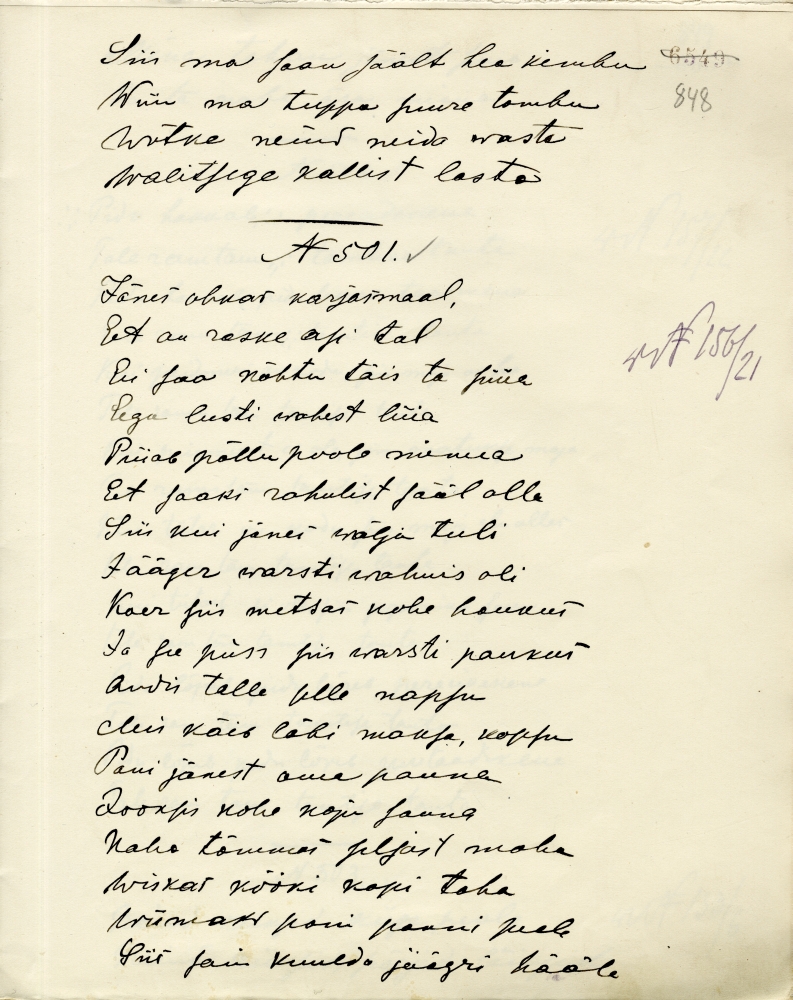 Siis ma saan säält hea kimbu 6549
Wiin ma tuppa suure tombu 848
Wõtke nenid neido wasta
Walitsege kallist lasta
N 501.
Jänes ohkas karjasmaal,
Et on raske asi tal
Ei saa kõhtu täis ta süüa
Ega lusti wahest lüüa
Püiab põllu poole minna
Et saaks rahulist sääl olla
Siis kui jänes wälja tuli
Jääger warsti wahwis oli
Koer siis metsas kohe haukus
Ja see püss siis warsti paukus
Andis talle selle napsu
Mis käis läbi maksa, kopsu
Pani jänest oma pauna
Jooksis kohe koju sauna
Naha tõmmas seljast maha
Wiskas kööki kapi taha
Wiimaks pani panni peale
Siis sain kuulda jäägri hääle
N 156/21